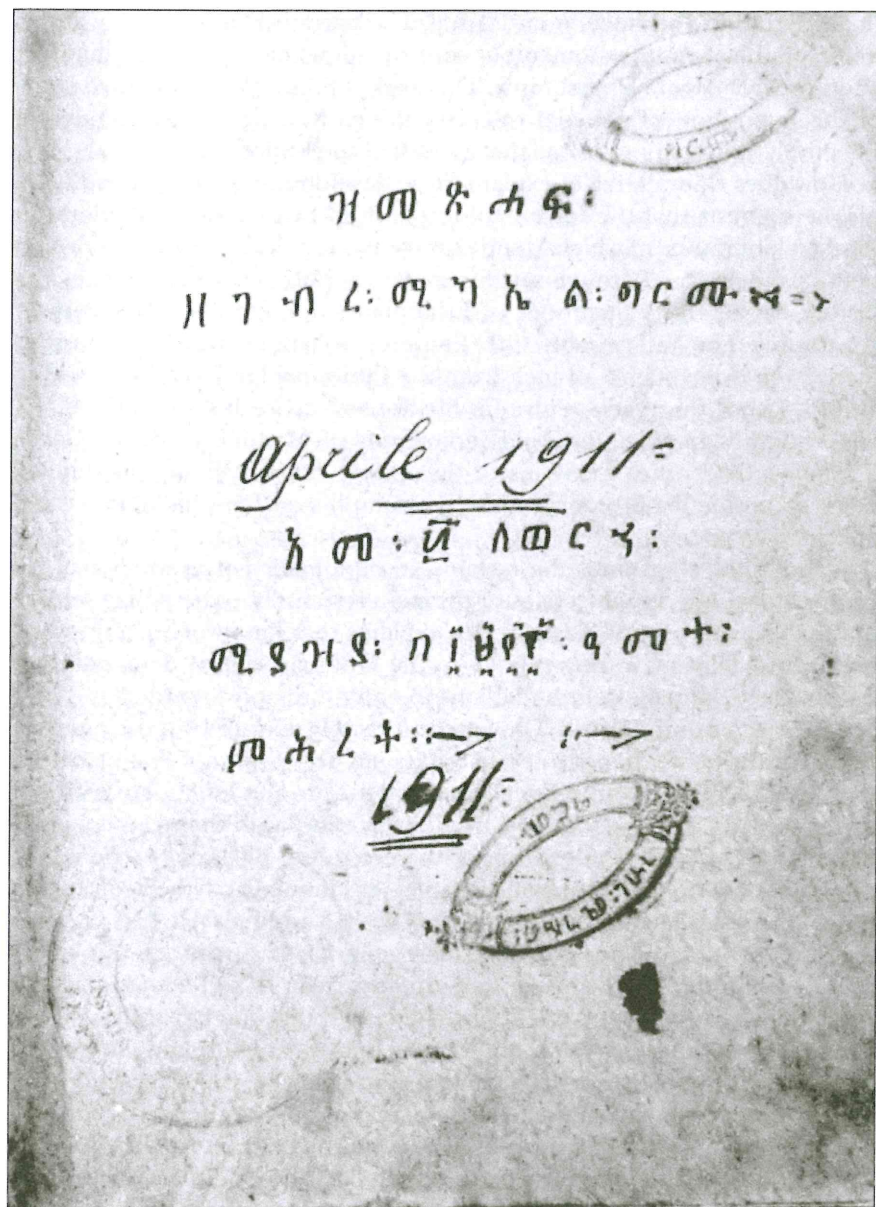 ዝመጽሓፍ፡
ዘገብረ፡ሚካኤል፡ግርሙ
Aprile 1911
አመ፡ ለወርኃ፡
ሚያዝያ፡ በ፲፱፻፫ ዓመተ፡
ምሕረት።
1911